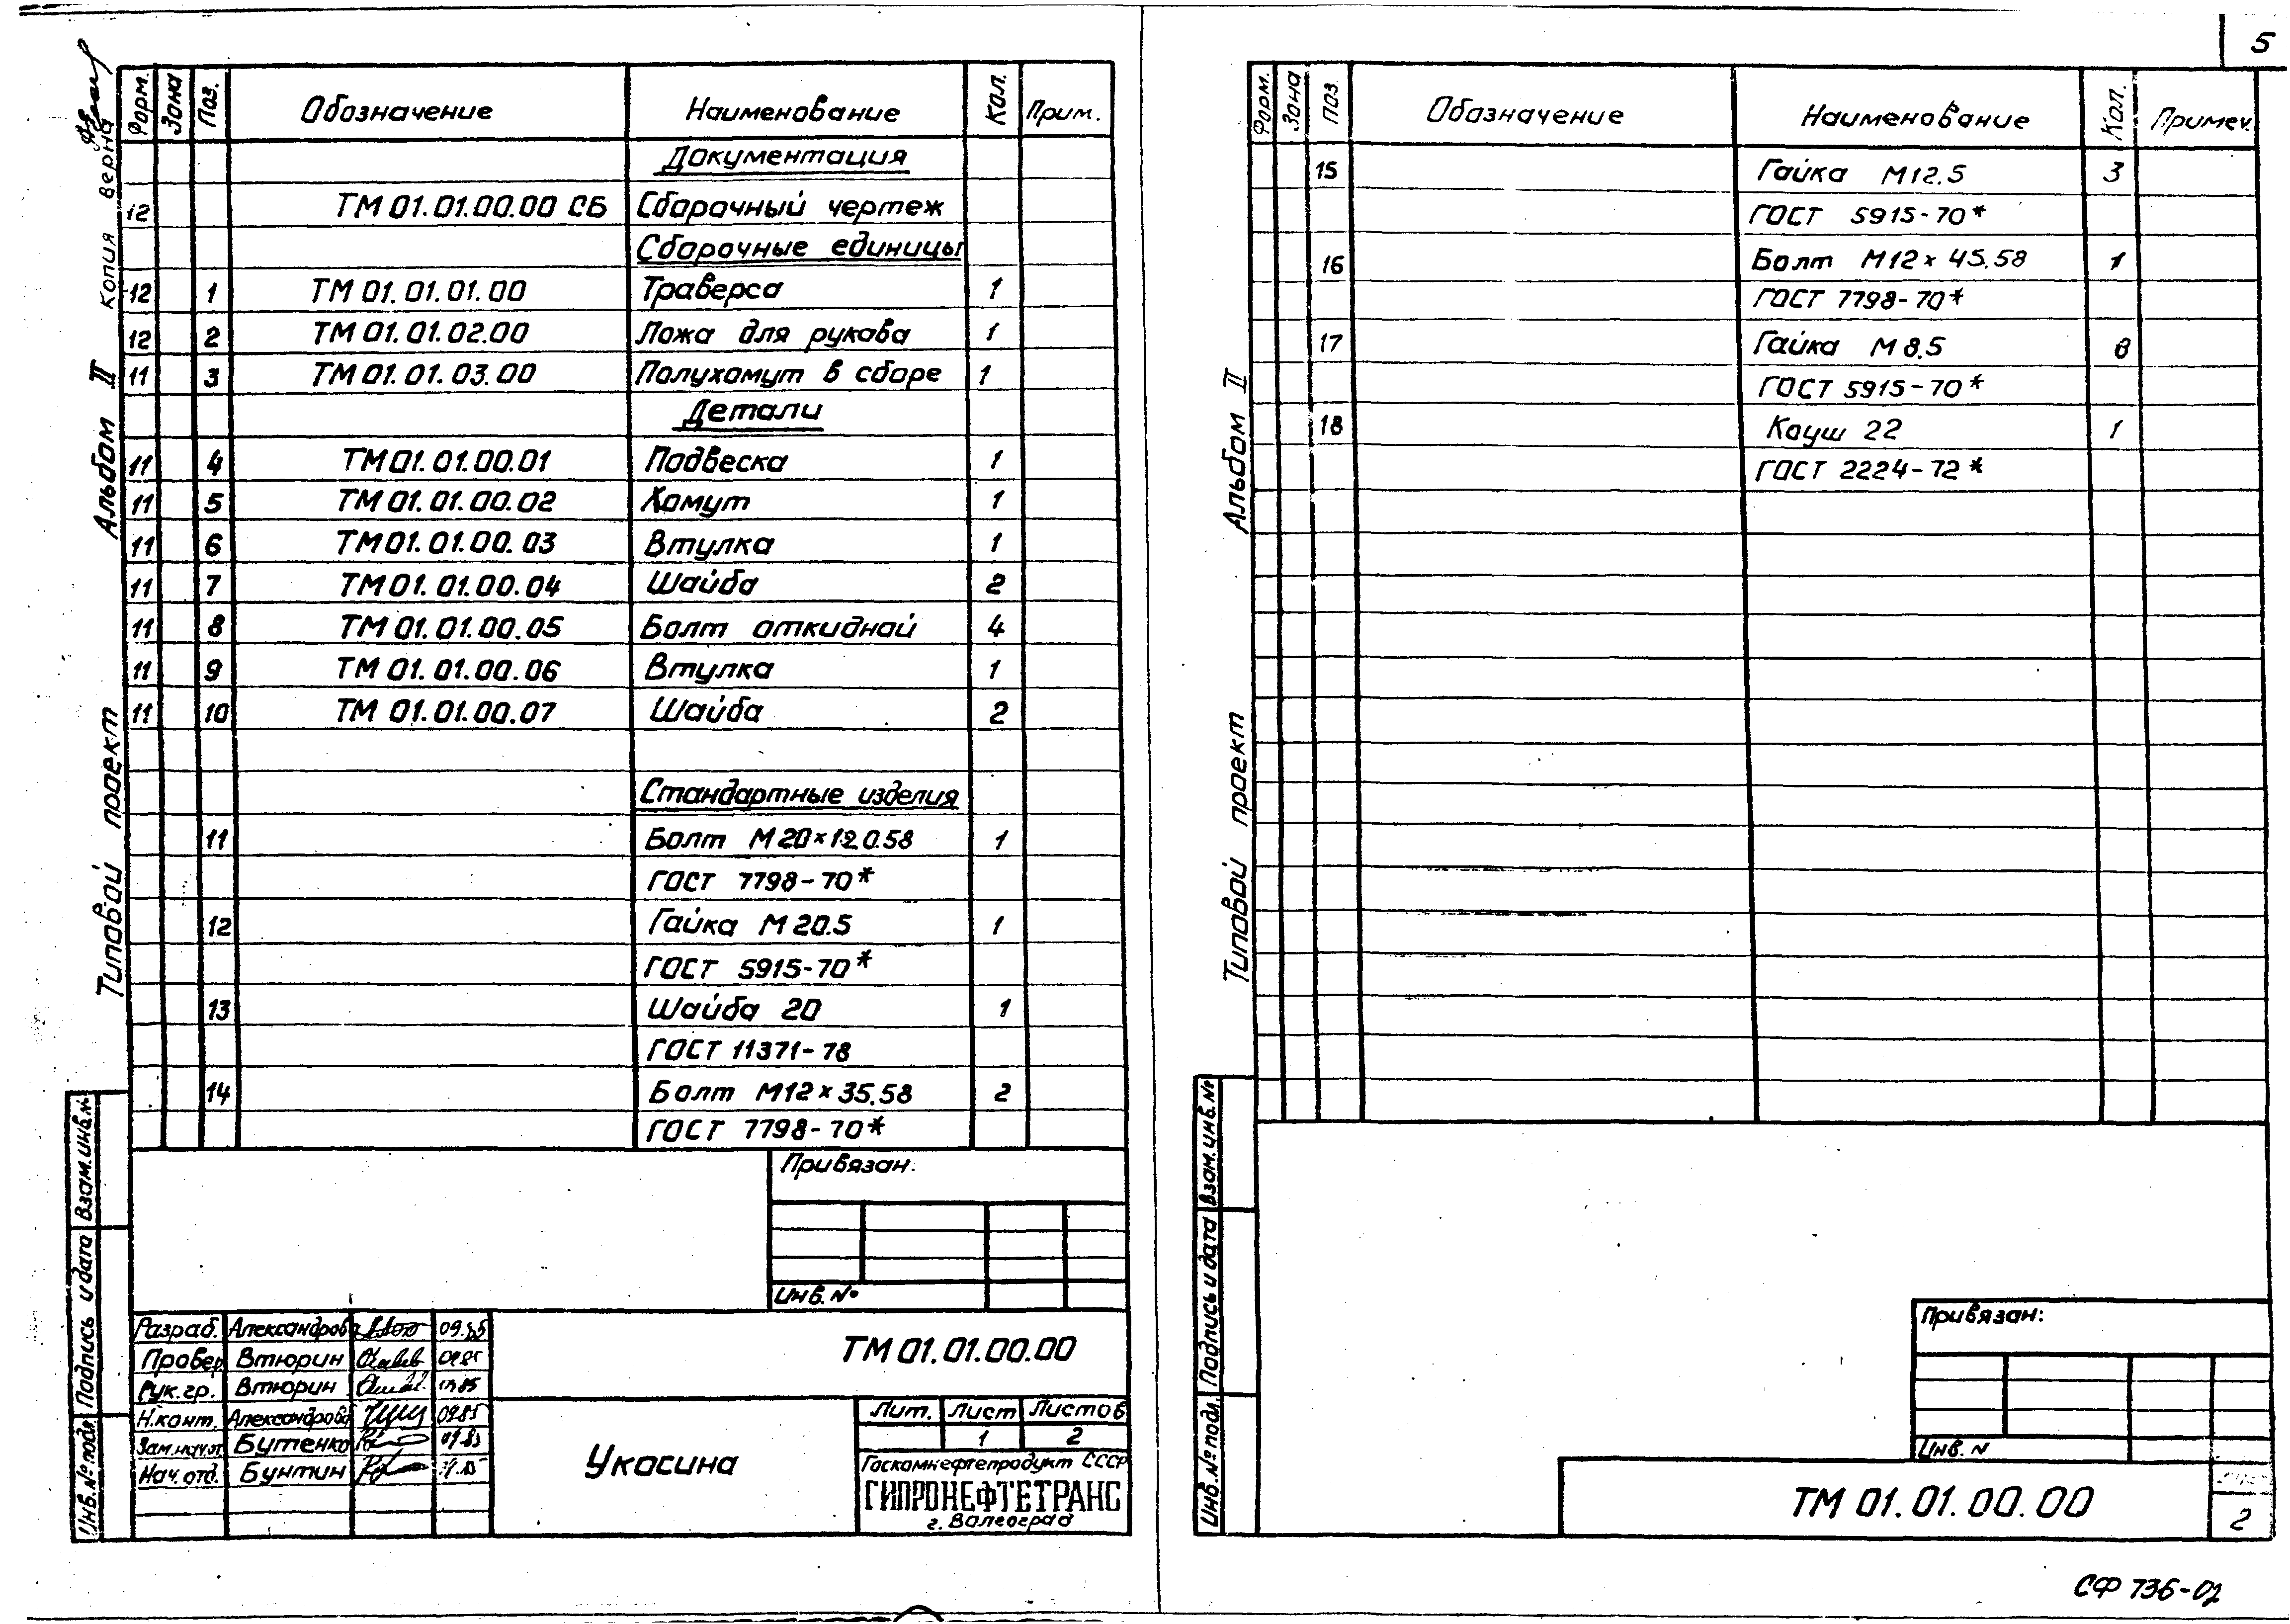 5
Копия верна
Альбом II
Типовой проект
Форм. Зона Поз. Обозначение Наименование Кол. Прим.
Документация
12 ТМ 01.01.00.00 СБ Сборочный чертеж
Сборочные единицы
12 1 ТМ 01.01.01.00 Траверса 1
12 2 ТМ 01.01.02.00 Ложа для рукава 1
11 3 ТМ 01.01.03.00 Полухомут в сборе 1
Детали
11 4 ТМ 01.01.00.01 Подвеска 1
11 5 ТМ 01.01.00.02 Хомут 1
11 6 ТМ 01.01.00.03 Втулка 1
11 7 ТМ 01.01.00.04 Шайба 2
11 8 ТМ 01.01.00.05 Болт откидной 4
11 9 ТМ 01.01.00.06 Втулка 1
11 10 ТМ 01.01.00.07 Шайба 2
Стандартные изделия
11 Болт М20×120.58 1
ГОСТ 7798-70*
12 Гайка М20.5 1
ГОСТ 5915-70*
13 Шайба 20 1
ГОСТ 11371-78
14 Болт М12×35.58 2
ГОСТ 7798-70*
Привязан.
Инв. №
Взам. инв. №
Подпись и дата
Инв. № подл.
Разраб. Александрова 09.85
Провер. Втюрин 09.85
Рук. гр. Втюрин 09.85
Н. конт. Александрова 09.85
Зам. нач. от. Бутенко 09.85
Нач. отд. Бунтин
ТМ 01.01.00.00
Укосина
Лит. Лист Листов
1 2
Госкомнефтепродукт СССР
ГИПРОНЕФТЕТРАНС
г. Волгоград
Альбом II
Типовой проект
Форм. Зона Поз. Обозначение Наименование Кол. Примеч.
15 Гайка М12.5 3
ГОСТ 5915-70*
16 Болт М12×45.58 1
ГОСТ 7798-70*
17 Гайка М8.5
ГОСТ 5915-70*
18 Коуш 22 1
ГОСТ 2224-72*
Взам. инв. №
Подпись и дата
Инв. № подл.
Привязан:
Инв. N
ТМ 01.01.00.00
2
СФ 736-02